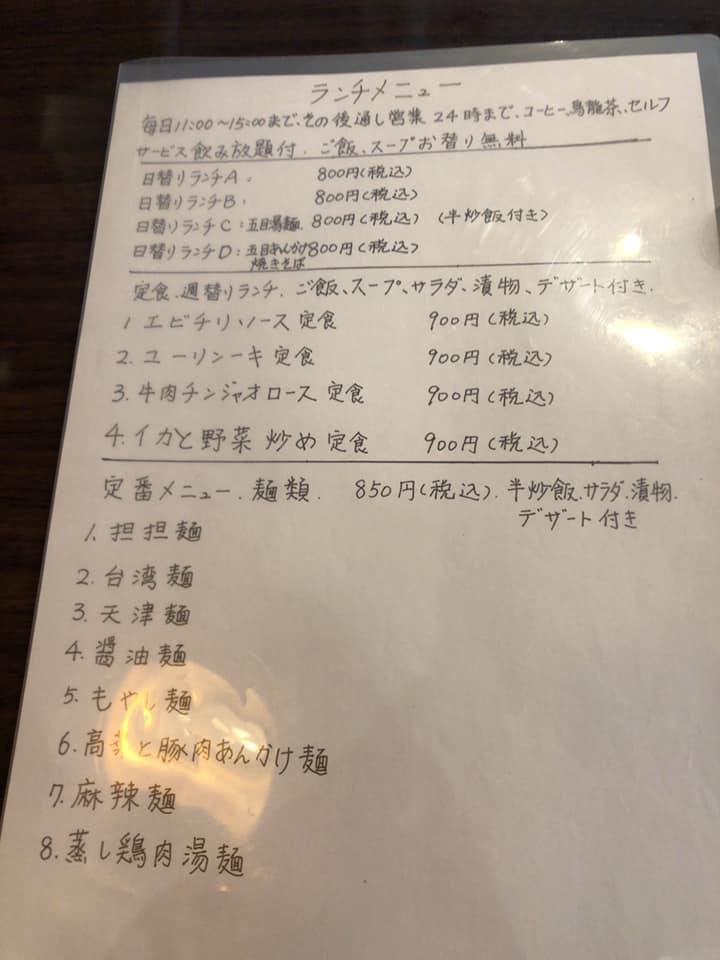 ランチメニュー
毎日11:00～15:00まで、その後通し営業 24時まで、コーヒー、烏龍茶、セルフ
サービス飲み放題付. ご飯、スープお替り無料
日替りランチA: 800円(税込)
日替りランチB: 800円(税込)
日替りランチC:五目湯麺. 800円(税込) (半炒飯付き)
日替りランチD:五目あんかけ 800円(税込)
焼きそば
定食.週替りランチ. ご飯、スープ、サラダ、漬物、デザート付き.
1 エビチリソース定食 900円(税込)
2. ユーリンーキ定食 900円(税込)
3. 牛肉チンジャオロース定食 900円(税込)
4. イカと野菜炒め定食 900円(税込)
定番メニュー. 麺類. 850円(税込). 半炒飯.サラダ.漬物.
デザート付き
1. 担担麺
2. 台湾麺
3. 天津麺
4. 醤油麺
5. もやし麺
6. 高菜と豚肉あんかけ麺
7. 麻辣麺
8. 蒸し鶏肉湯麺